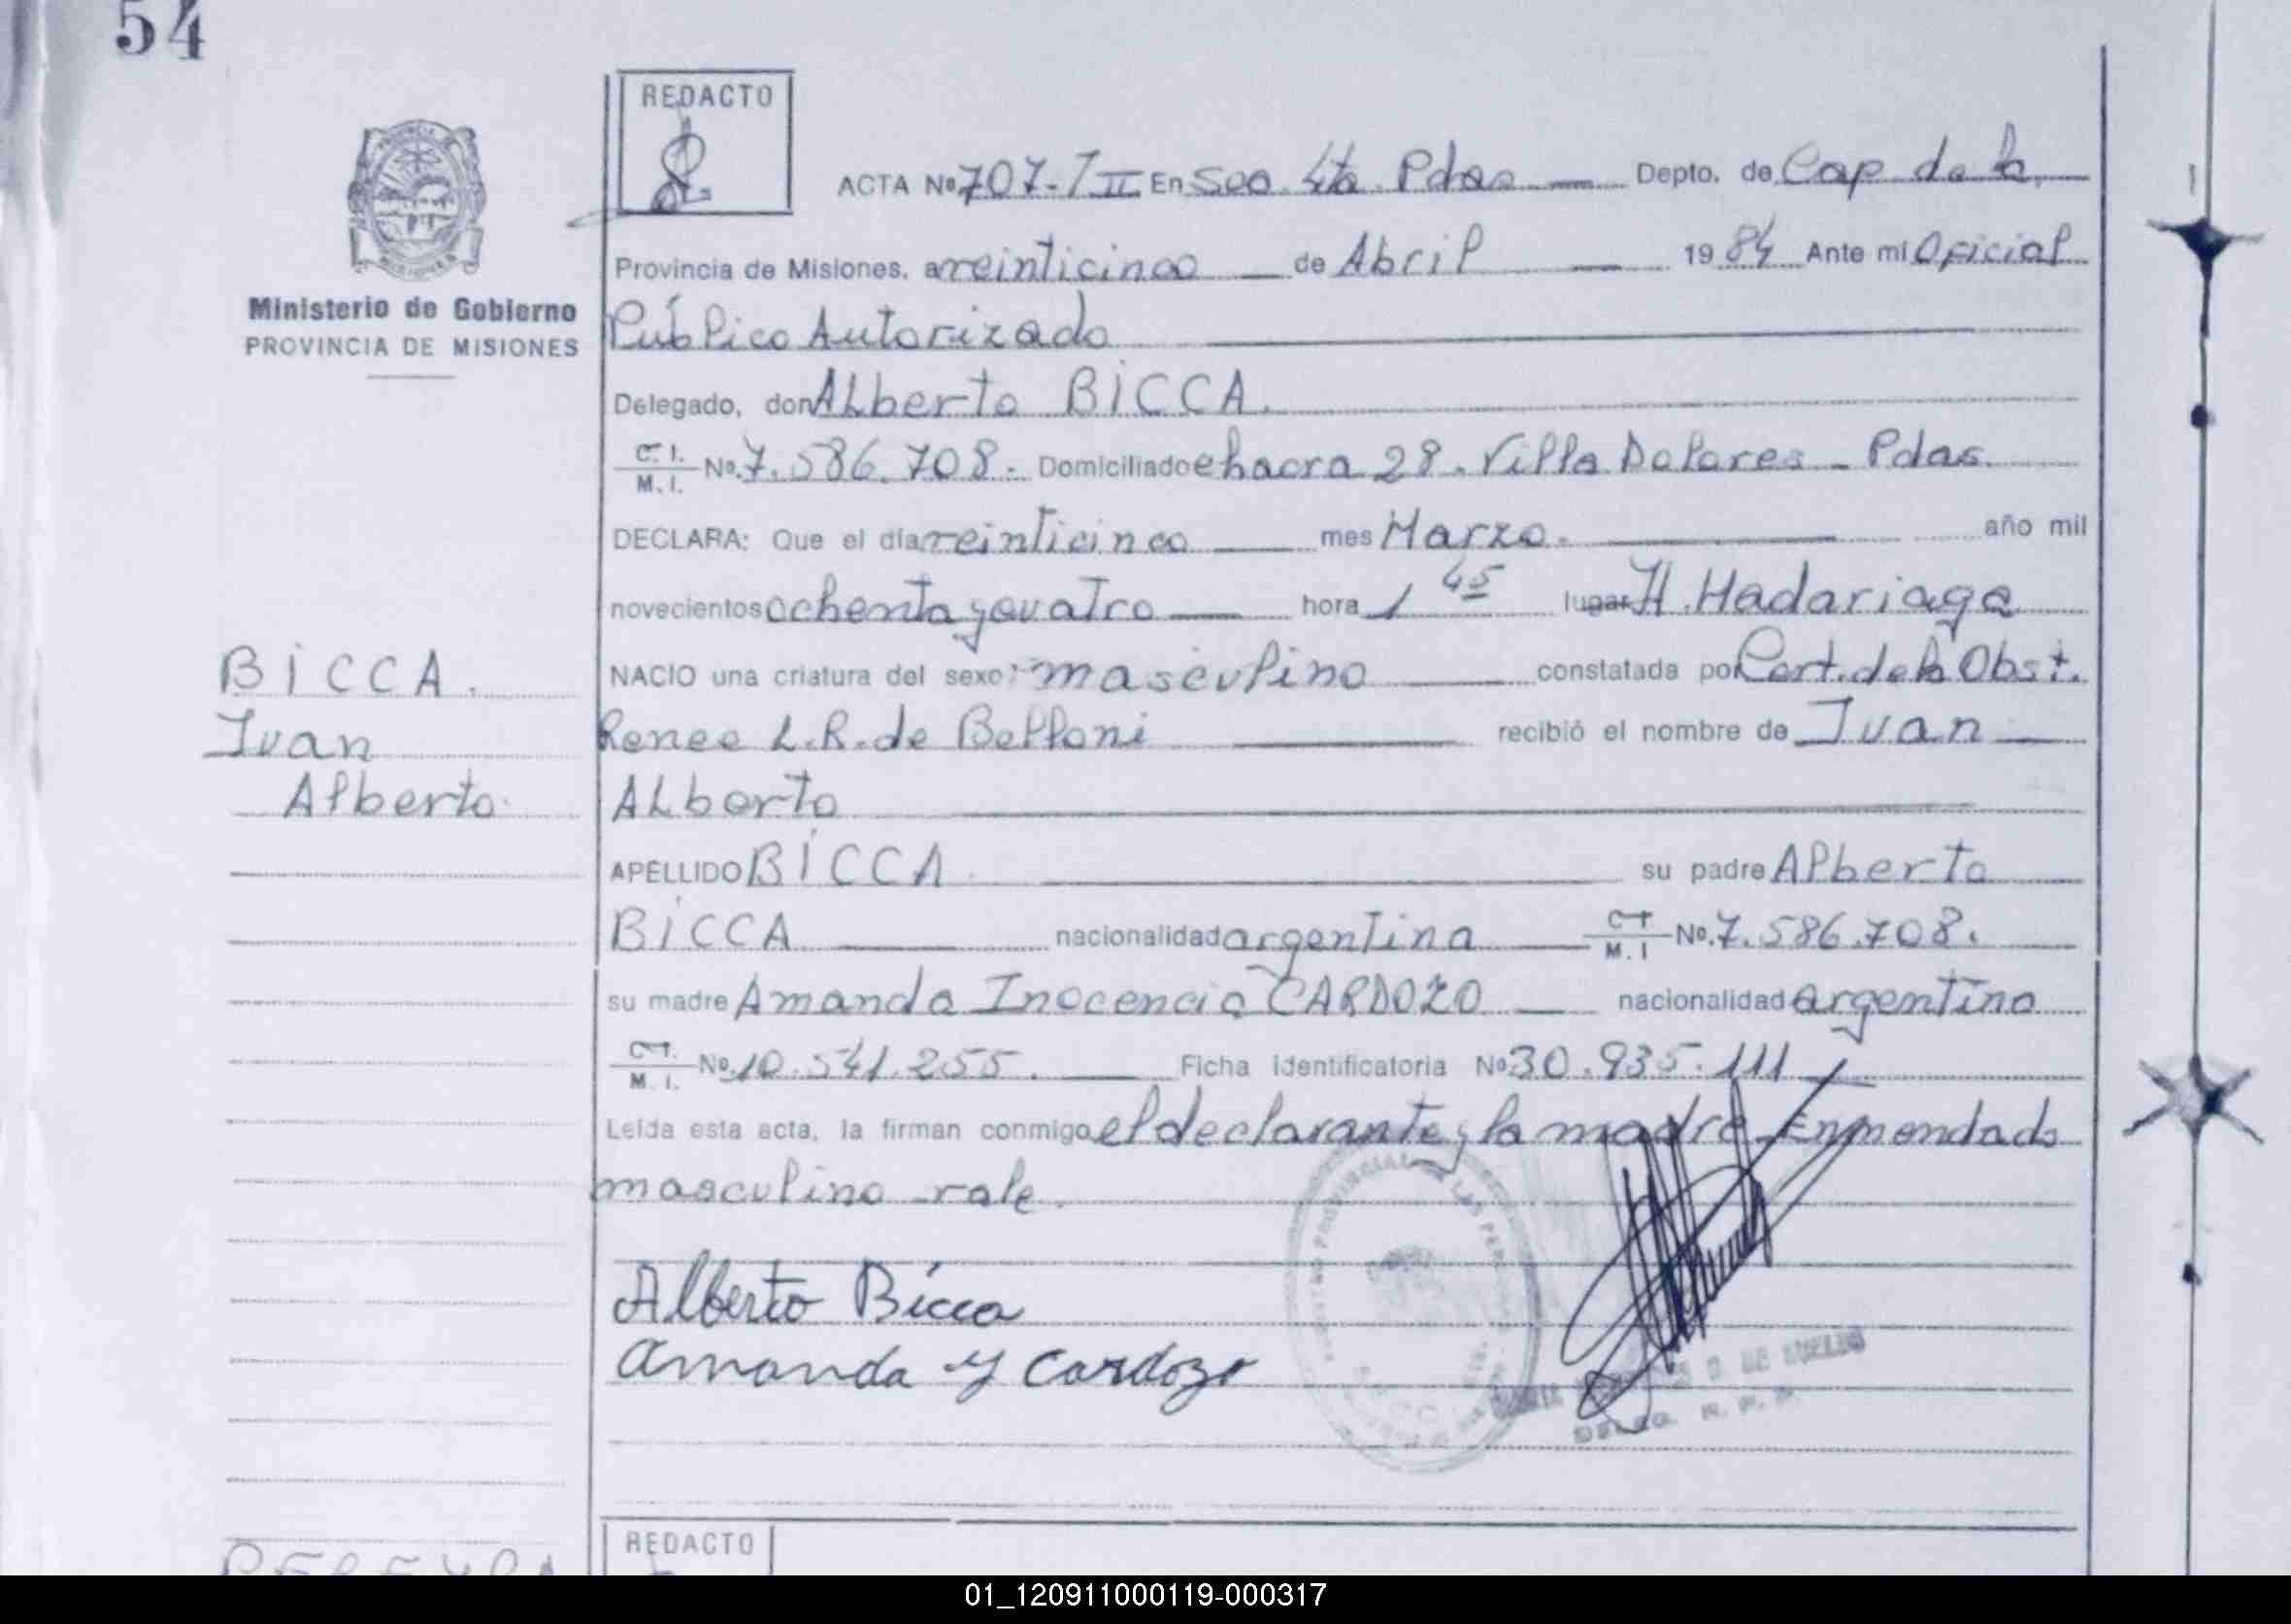 54
REDACTO
ACTA Nº 707-T II En Sec. 4ta. Pdas Depto. de Cap. de la
Provincia de Misiones, a veinticinco de Abril 1984 Ante mi Oficial
Público Autorizado
Ministerio de Gobierno
PROVINCIA DE MISIONES
Delegado, don Alberto BICCA.
C. I. / M. I. Nº 7.586.708. Domiciliado chacra 28. Villa Dolores - Pdas.
DECLARA: Que el día veinticinco mes Marzo. año mil
novecientos ochenta y cuatro hora 1 45 lugar H. Madariaga
NACIO una criatura del sexo: masculino constatada por Cert. de la Obst.
Renee L.R. de Belloni recibió el nombre de Ivan
Alberto
BICCA.
Ivan
Alberto
APELLIDO BICCA su padre Alberto
BICCA nacionalidad argentina C.I. / M.I Nº 7.586.708.
su madre Amanda Inocencia CARDOZO nacionalidad argentina
C.I. / M. I. Nº 10.541.255. Ficha identificatoria Nº 30.935.111
Leída esta acta, la firman conmigo el declarante y la madre. Enmendado
masculino vale.
Alberto Bicca
Amanda Y Cardozo
REGISTRO PROVINCIAL DE LAS PERSONAS
DE SUELDO
DELEG. R. P. P.
REDACTO
PEREYRA
01_120911000119-000317